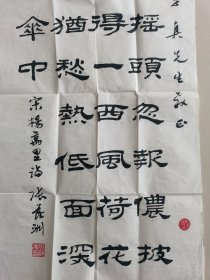 真先生教正
摇頭忽報儂披
得一西風荷花
猶愁熱低面深
傘中
宋楊萬里詩 張洲